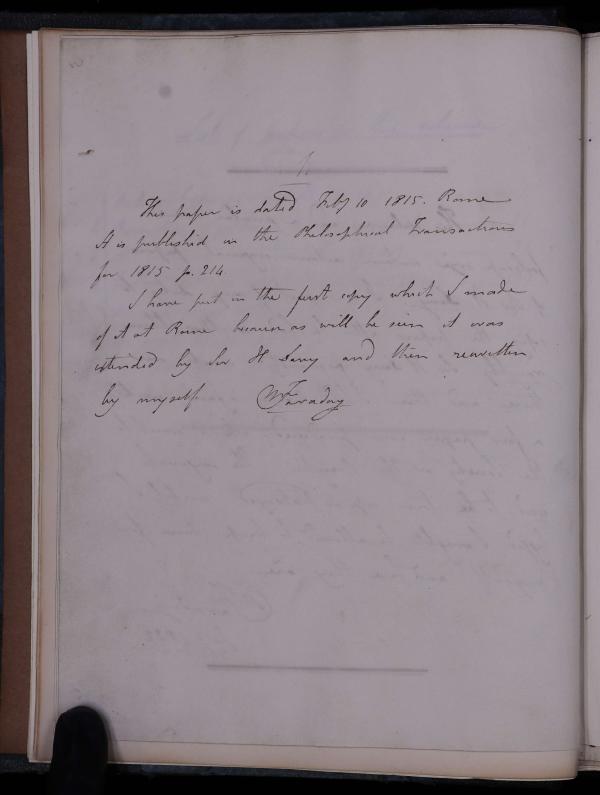 This paper is dated Feby 10 1815. Rome
It is published in the Philosophical Transactions
for 1815 p. 214.
I have put in the first copy which I made
of it at Rome because as will be seen it was
extended by Sir H. Davy and then rewritten
by myself MFaraday